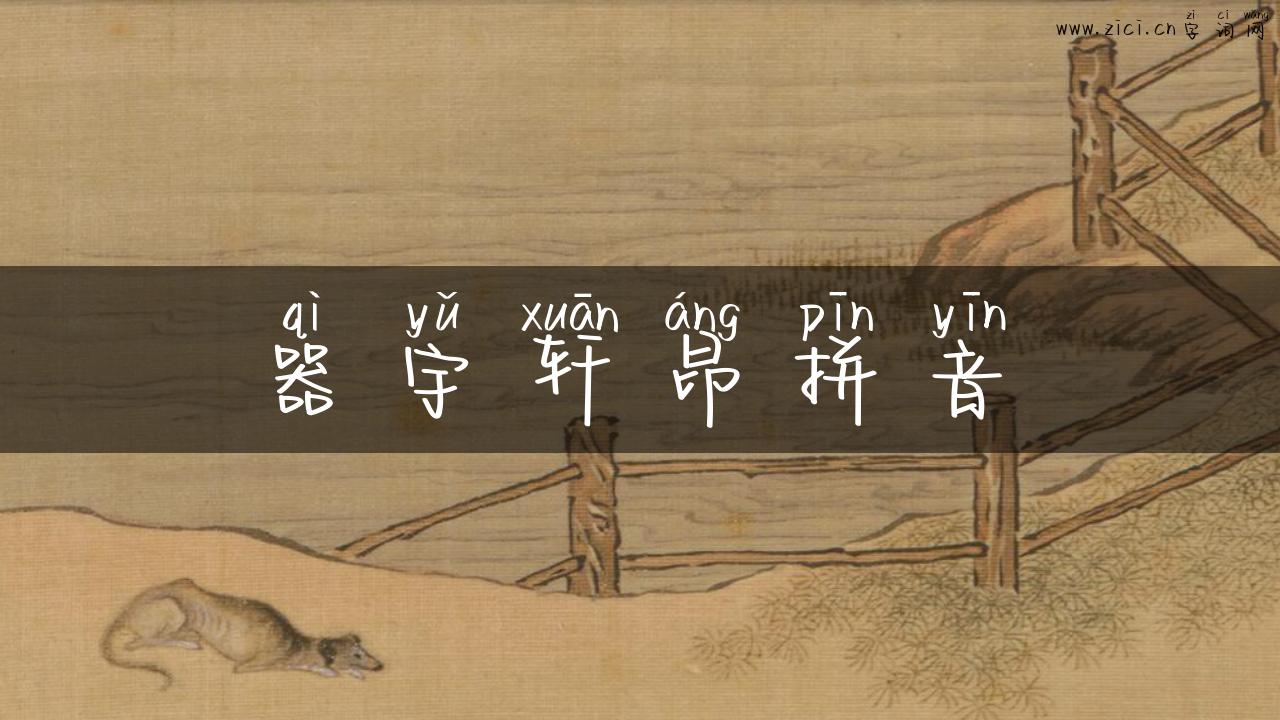 zì cí wǎng
www.zici.cn字词网
qì yǔ xuān áng pīn yīn
器宇轩昂拼音